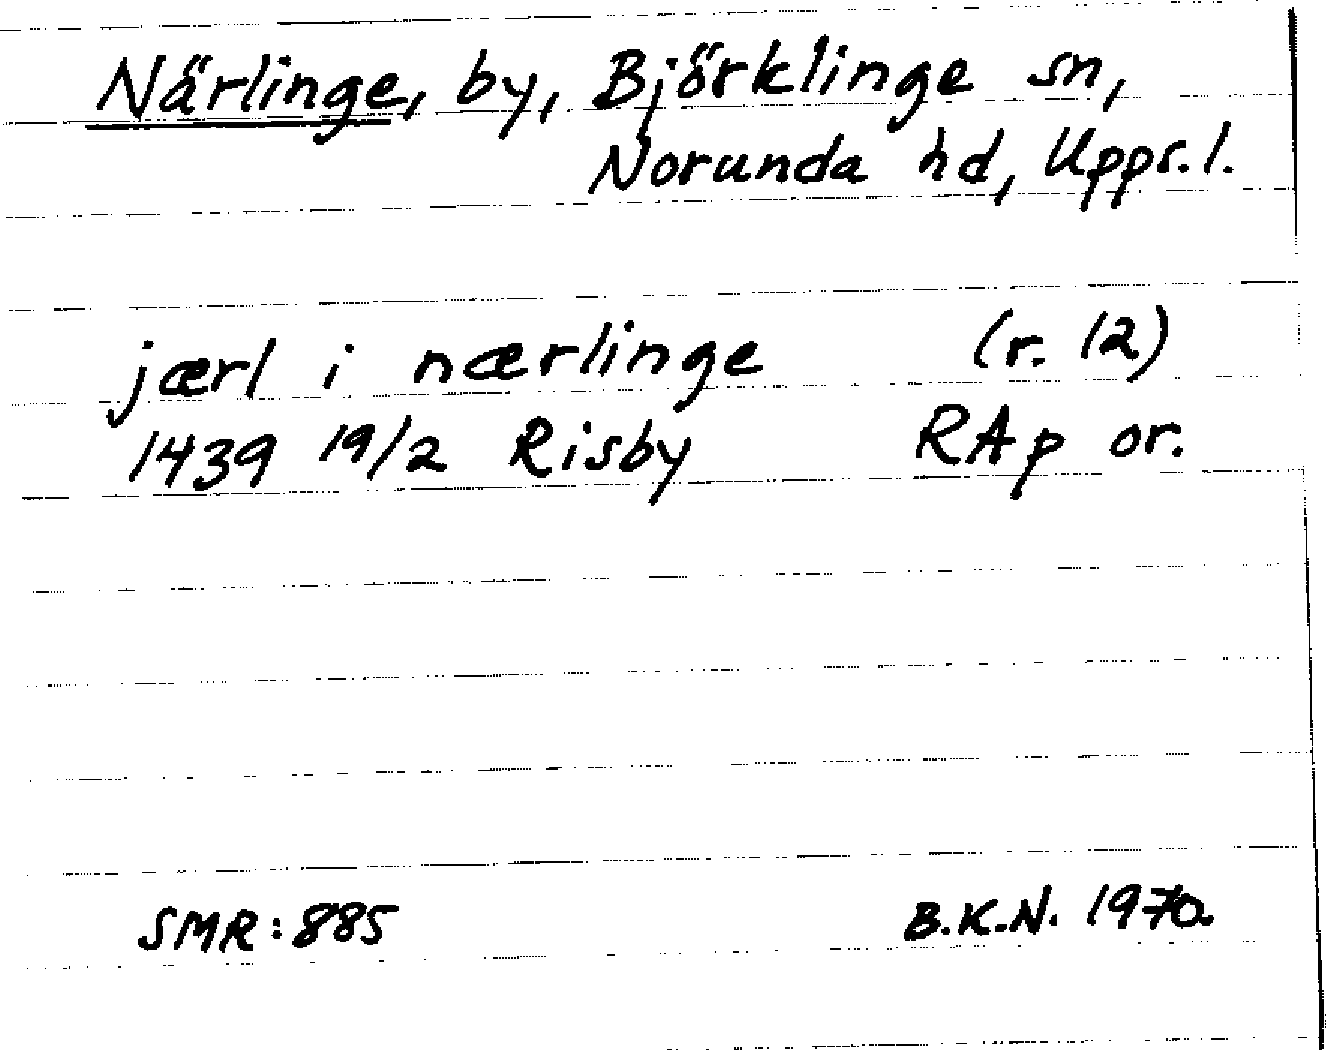 Närlinge, by, Björklinge sn,
Norunda hd, Upps. l.
jærl i nærlinge (r. 12)
1439 19/2 Risby RAp or.
SMR: 885 B.K.N. 1970.